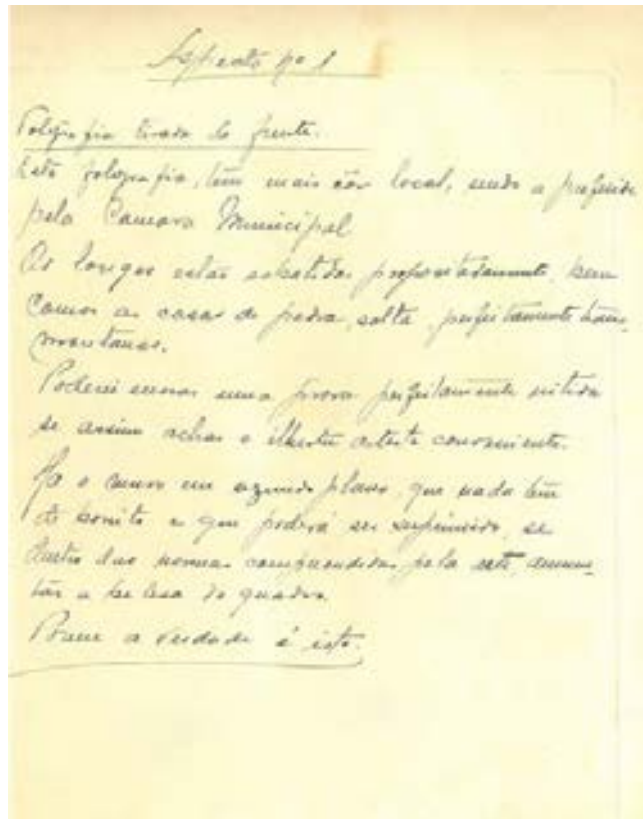 Aspecto nº 1
Fotografia tirada de frente.
Esta fotografia, tem mais côr local, sendo a preferida
pela Camara Municipal
Os longes estão esbatidos propositadamente, bem
como as casas de pedra solta, perfeitamente trans-
montanas.
Poderei enviar uma prova perfeitamente nitida
se assim achar o illustre artista conveniente.
Ha o muro em segundo plano, que nada tem
de bonito e que poderá ser suprimido, se
dentro das normas comprehendidas pela arte, aumen-
tar a beleza do quadro.
Porem a verdade é esta.